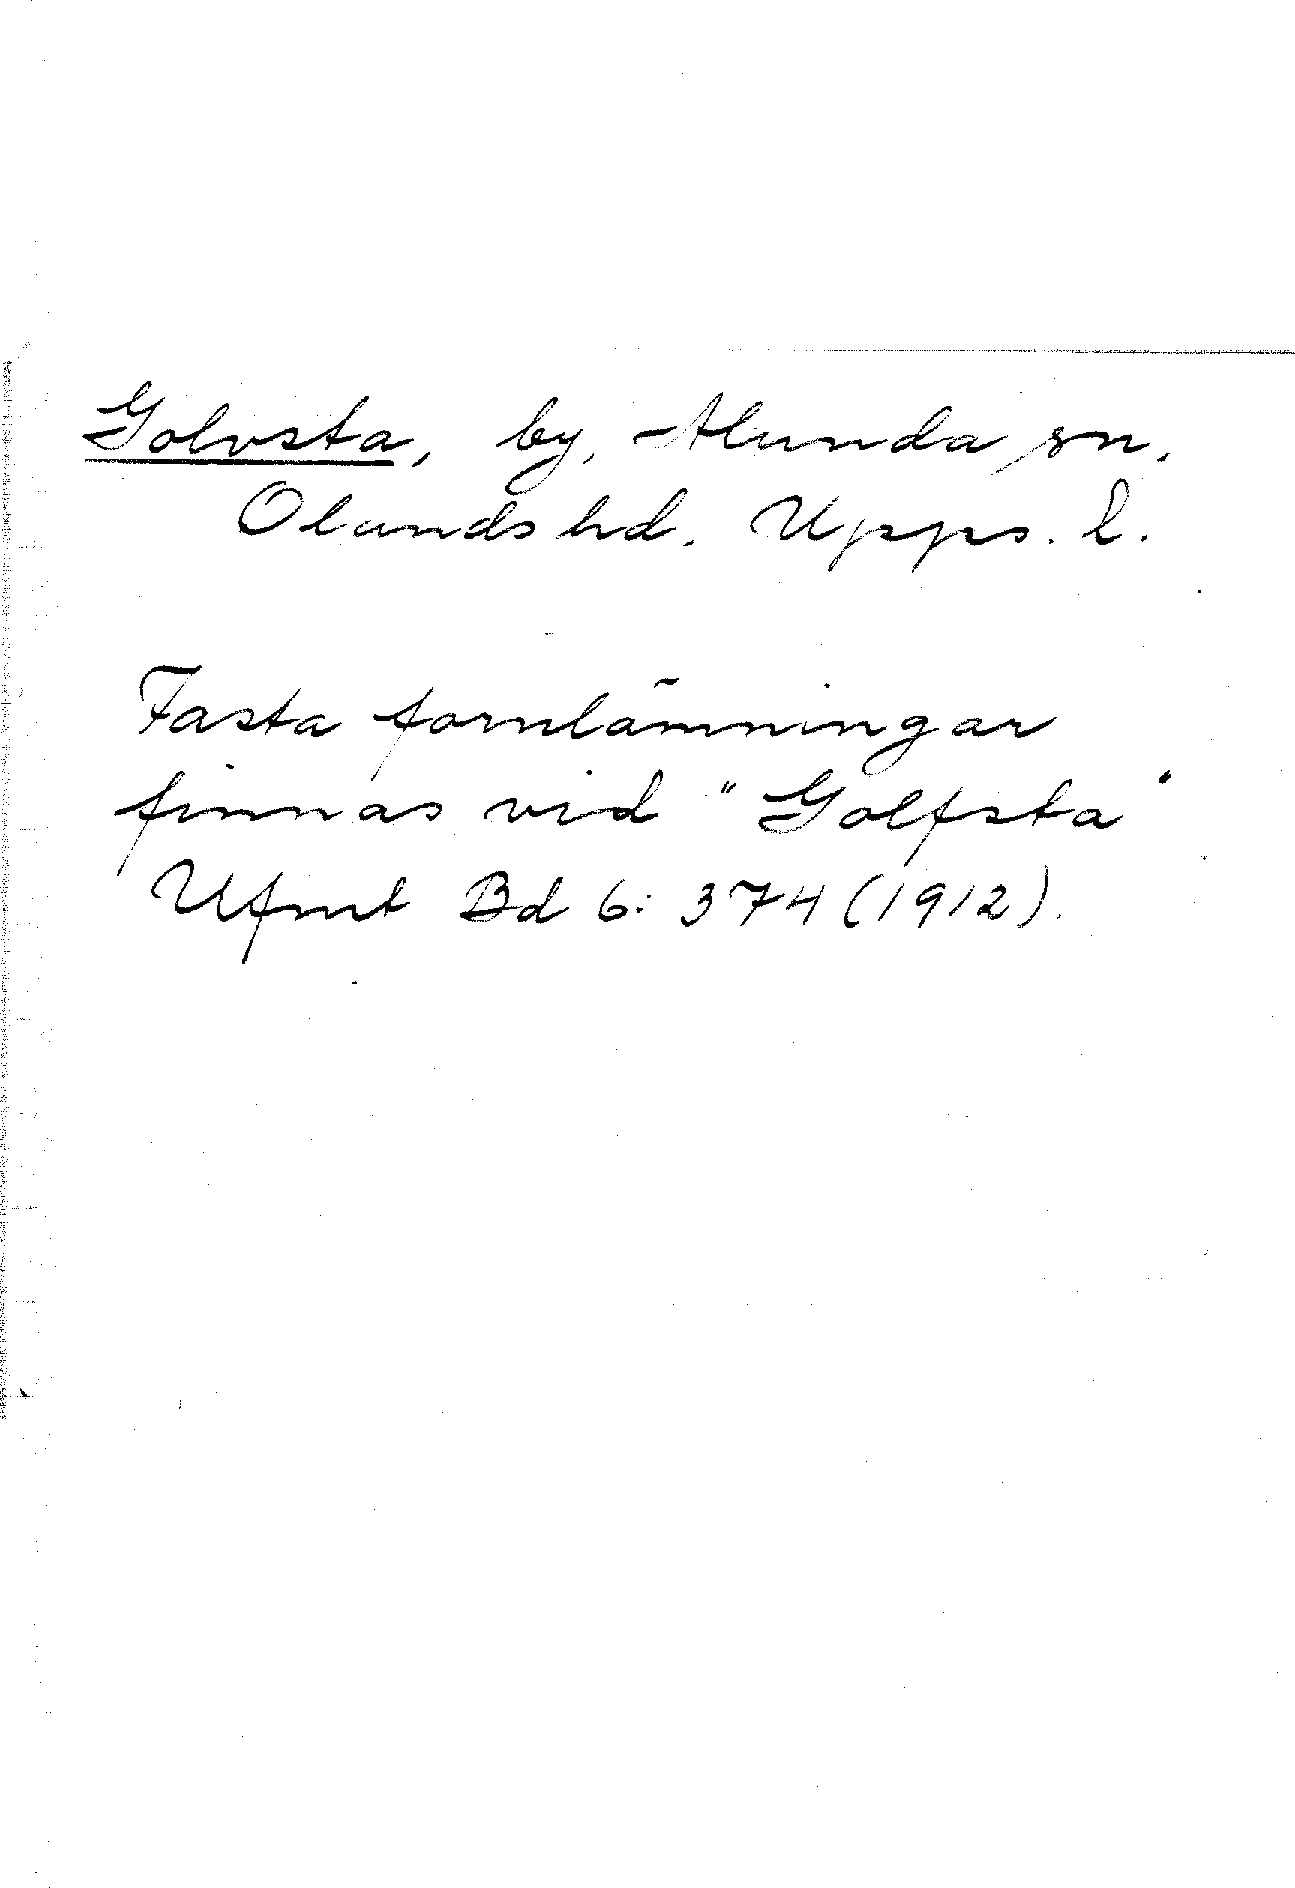 Golvsta, by, Alunda sn,
Olands hd. Upps. l.
Fasta fornlämningar
finnas vid "Golfsta"
Ufmt Bd 6: 374 (1912).